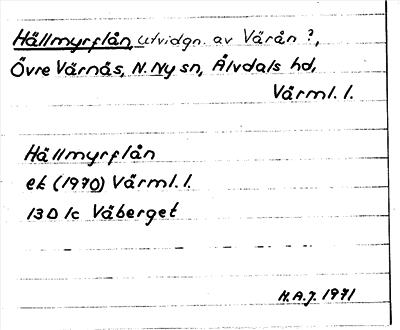 Hällmyrflån, utvidgn. av Värån ?,
Övre Värnäs, N. Ny sn, Älvdals hd,
Värml. l.
Hällmyrflån
ek (1970) Värml. l.
13D 1c Våberget
N.A.J. 1971